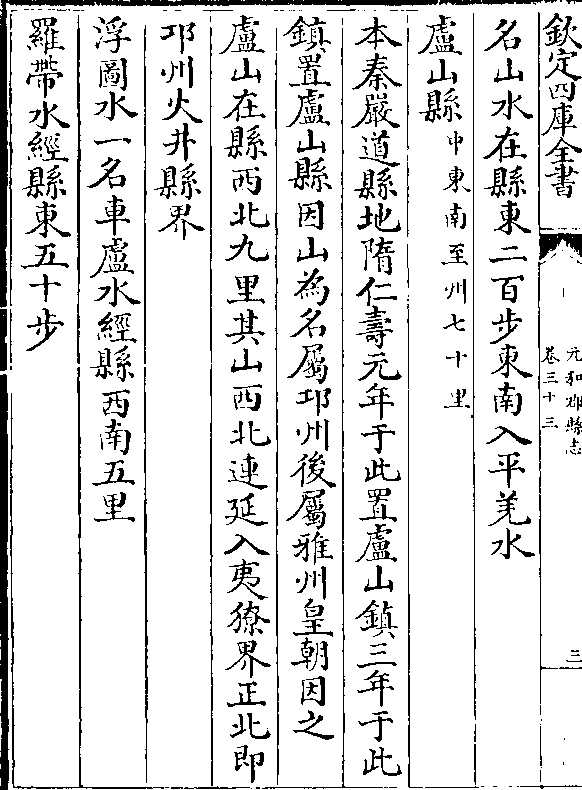 欽定四庫全書
元和郡縣志
卷三十三
三
名山水在縣東二百步東南入平羌水
盧山縣中東南至州七十里
本秦嚴道縣地隋仁壽元年于此置盧山鎮三年于此
鎮置盧山縣因山為名屬邛州後屬雅州皇朝因之
盧山在縣西北九里其山西北連延入夷獠界正北即
邛州火井縣界
浮圖水一名車盧水經縣西南五里
羅帶水經縣東五十步